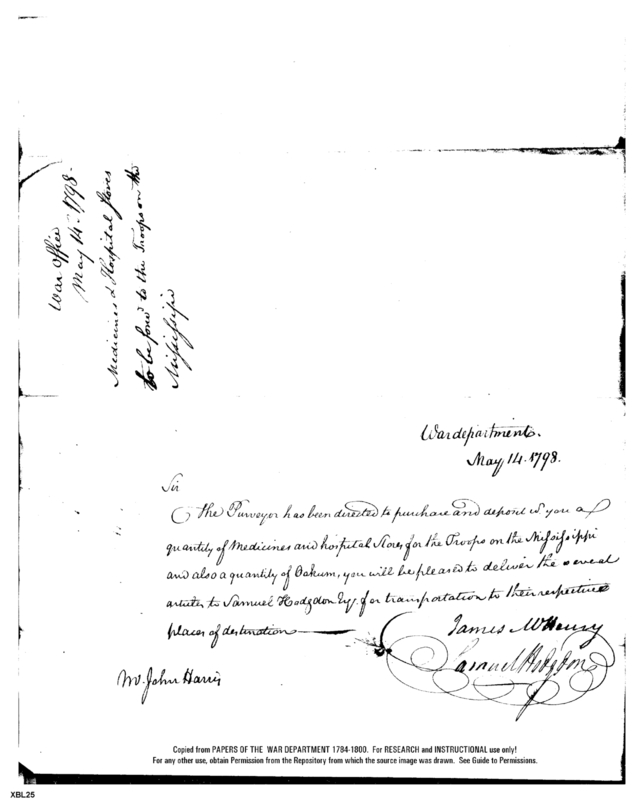 War Office
May 14. 1798.
Medicines & Hospital Stores
to be forwd to the Troops on the
Missisippi
War department.
May, 14. 1798.
Sir
The Purveyor has been directed to purchase and deposit wt you a
quantity of Medicines and hospital Stores for the Troops on the Missisippi
and also a quantity of Oakum, you will be pleased to deliver the several
articles to Samuel Hodgdon Esq. for transportation to their respective
places of destination
James McHenry
Samuel Hodgdon
Mr. John Harris
Copied from PAPERS OF THE WAR DEPARTMENT 1784-1800. For RESEARCH and INSTRUCTIONAL use only!
For any other use, obtain Permission from the Repository from which the source image was drawn. See Guide to Permissions.
XBL25